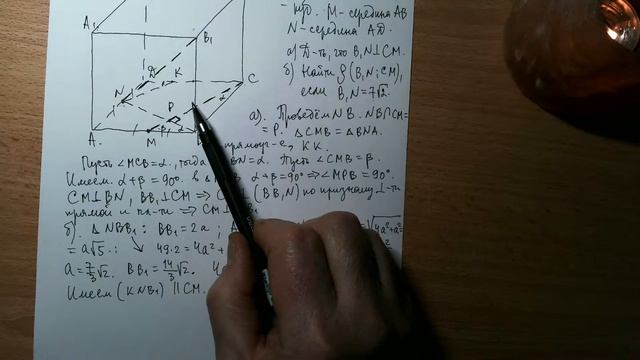 A₁
B₁
N
D
K
C
P
α
A
M
β
- куб. M - середина AB
N - середина AD.
а) Д-ть, что B₁N ⊥ CM.
б) Найти ρ(B₁N; CM),
если B₁N = 7√2.
а). Проведём NB. NB∩CM =
= P. △CMB = △BNA.
прямоуг-е, KK.
Пусть ∠MCB = α, тогда BN = α. Пусть ∠CMB = β.
Имеем. α + β = 90°. в △M α + β = 90° ⇒ ∠MPB = 90°.
CM ⊥ BN, BB₁ ⊥ CM ⇒ C (BB₁N) по признаку ⊥-ти
прямой и пл-ти ⇒ CM ⊥ B₁
б). △NBB₁: BB₁ = 2a; = √4a² + a² =
= a√5.: 49·2 = 4a² +
a = 7/3 √2. BB₁ = 14/3 √2.
Имеем (KNB₁) ∥ CM.